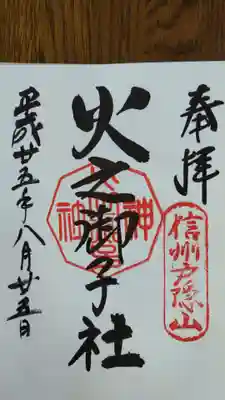 奉拝
信州戸隠山
火之御子社
平成廿五年八月廿五日